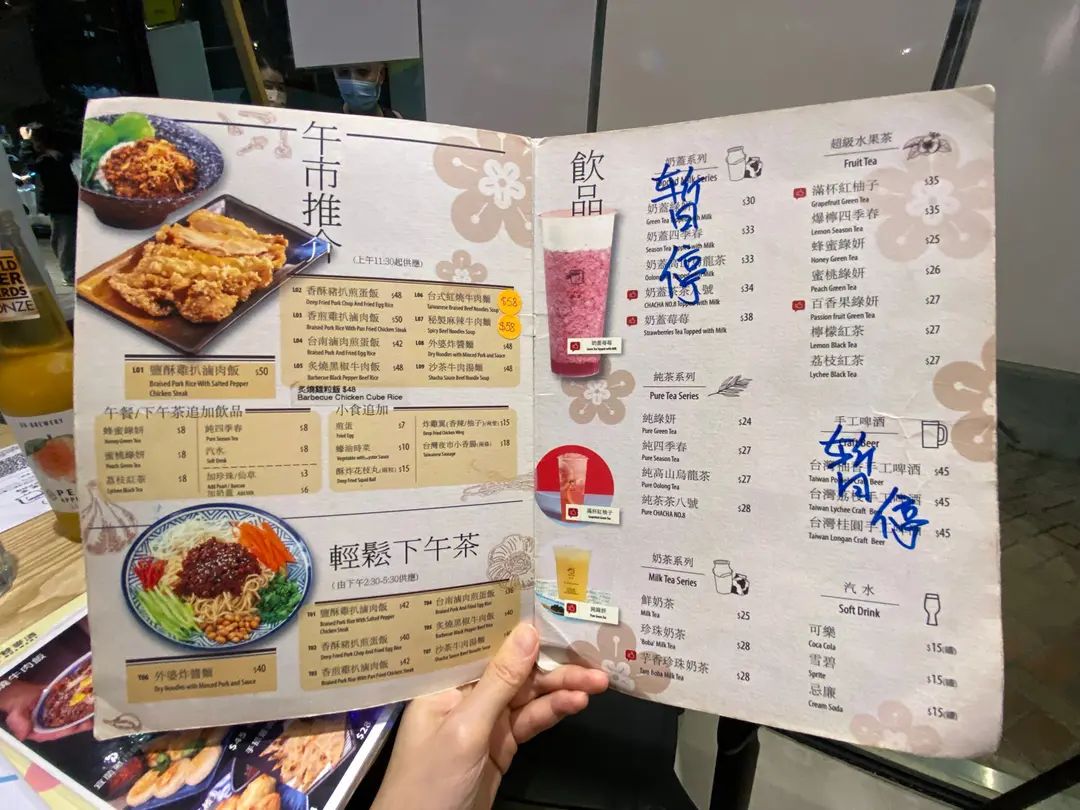 午市推介
(上午11:30起供應)
L02 香酥豬扒煎蛋飯 $48
Deep Fried Pork Chop And Fried Egg Rice
L03 香煎雞扒滷肉飯 $50
Braised Pork Rice With Pan Fried Chicken Steak
L04 台南滷肉煎蛋飯 $42
Braised Pork And Fried Egg Rice
L05 炙燒黑椒牛肉飯 $48
Barbecue Black Pepper Beef Rice
L06 台式紅燒牛肉麵 $58
Taiwanese Braised Beef Noodles Soup
L07 秘製麻辣牛肉麵 $58
Spicy Beef Noodles Soup
L08 外婆炸醬麵 $48
Dry Noodles with Minced Pork and Sauce
L09 沙茶牛肉湯麵 $48
Shacha Sauce Beef Noodle Soup
L01 鹽酥雞扒滷肉飯 $50
Braised Pork Rice With Salted Pepper
Chicken Steak
炙燒雞粒飯 $48
Barbecue Chicken Cube Rice
午餐/下午茶追加飲品
蜂蜜綠妍 $8
Honey Green Tea
蜜桃綠妍 $8
Peach Green Tea
荔枝紅茶 $8
Lychee Black Tea
純四季春 $8
Pure Season Tea
汽水 $8
Soft Drink
加珍珠/仙草 $3
Add Pearl / Bancao
加奶蓋 $6
小食追加
煎蛋 $7
Fried Egg
蠔油時菜 $10
Vegetable with Oyster Sauce
酥炸花枝丸 $15
Deep Fried Squid Ball
炸雞翼(香辣/柚子) $15
Deep Fried Chicken Wing
台灣夜市小香腸 $18
Taiwanese Sausage
輕鬆下午茶
(由下午2:30-5:30供應)
T01 鹽酥雞扒滷肉飯 $42
Braised Pork Rice With Salted Pepper
Chicken Steak
T02 香酥豬扒煎蛋飯 $40
Deep Fried Pork Chop And Fried Egg Rice
T03 香煎雞扒滷肉飯 $42
Braised Pork Rice With Pan Fried Chicken Steak
T04 台南滷肉煎蛋飯
Braised Pork And Fried Egg Rice
T05 炙燒黑椒牛肉飯
Barbecue Black Pepper Beef Rice
T07 沙茶牛肉湯麵
Shacha Sauce Beef Noodle Soup
T06 外婆炸醬麵 $40
Dry Noodles with Minced Pork and Sauce
飲品
奶蓋系列
暫停
奶蓋 $30
Green Tea Topped with Milk
奶蓋四季春 $33
奶蓋高山烏龍茶 $33
奶蓋茶茶八號 $34
CHACHA NO.8 Topped with Milk
奶蓋莓莓 $38
Strawberries Tea Topped with Milk
奶蓋莓莓
純茶系列
Pure Tea Series
純綠妍 $24
Pure Green Tea
純四季春 $27
Pure Season Tea
純高山烏龍茶 $27
Pure Oolong Tea
純茶茶八號 $28
Pure CHACHA NO.8
滿杯紅柚子
純綠妍
奶茶系列
Milk Tea Series
鮮奶茶 $25
Milk Tea
珍珠奶茶 $28
'Boba' Milk Tea
芋香珍珠奶茶 $28
Taro Boba Milk Tea
超級水果茶
Fruit Tea
滿杯紅柚子 $35
Grapefruit Green Tea
爆檸四季春 $35
Lemon Season Tea
蜂蜜綠妍 $25
Honey Green Tea
蜜桃綠妍 $26
Peach Green Tea
百香果綠妍 $27
Passion fruit Green Tea
檸檬紅茶 $27
Lemon Black Tea
荔枝紅茶 $27
Lychee Black Tea
手工啤酒
Craft Beer
暫停
台灣柚香手工啤酒 $45
Taiwan Pomelo Craft Beer
台灣荔枝手工啤酒 $45
Taiwan Lychee Craft Beer
台灣桂圓手工啤酒 $45
Taiwan Longan Craft Beer
汽水
Soft Drink
可樂 $15(罐)
Coca Cola
雪碧 $15(罐)
Sprite
忌廉 $15(罐)
Cream Soda